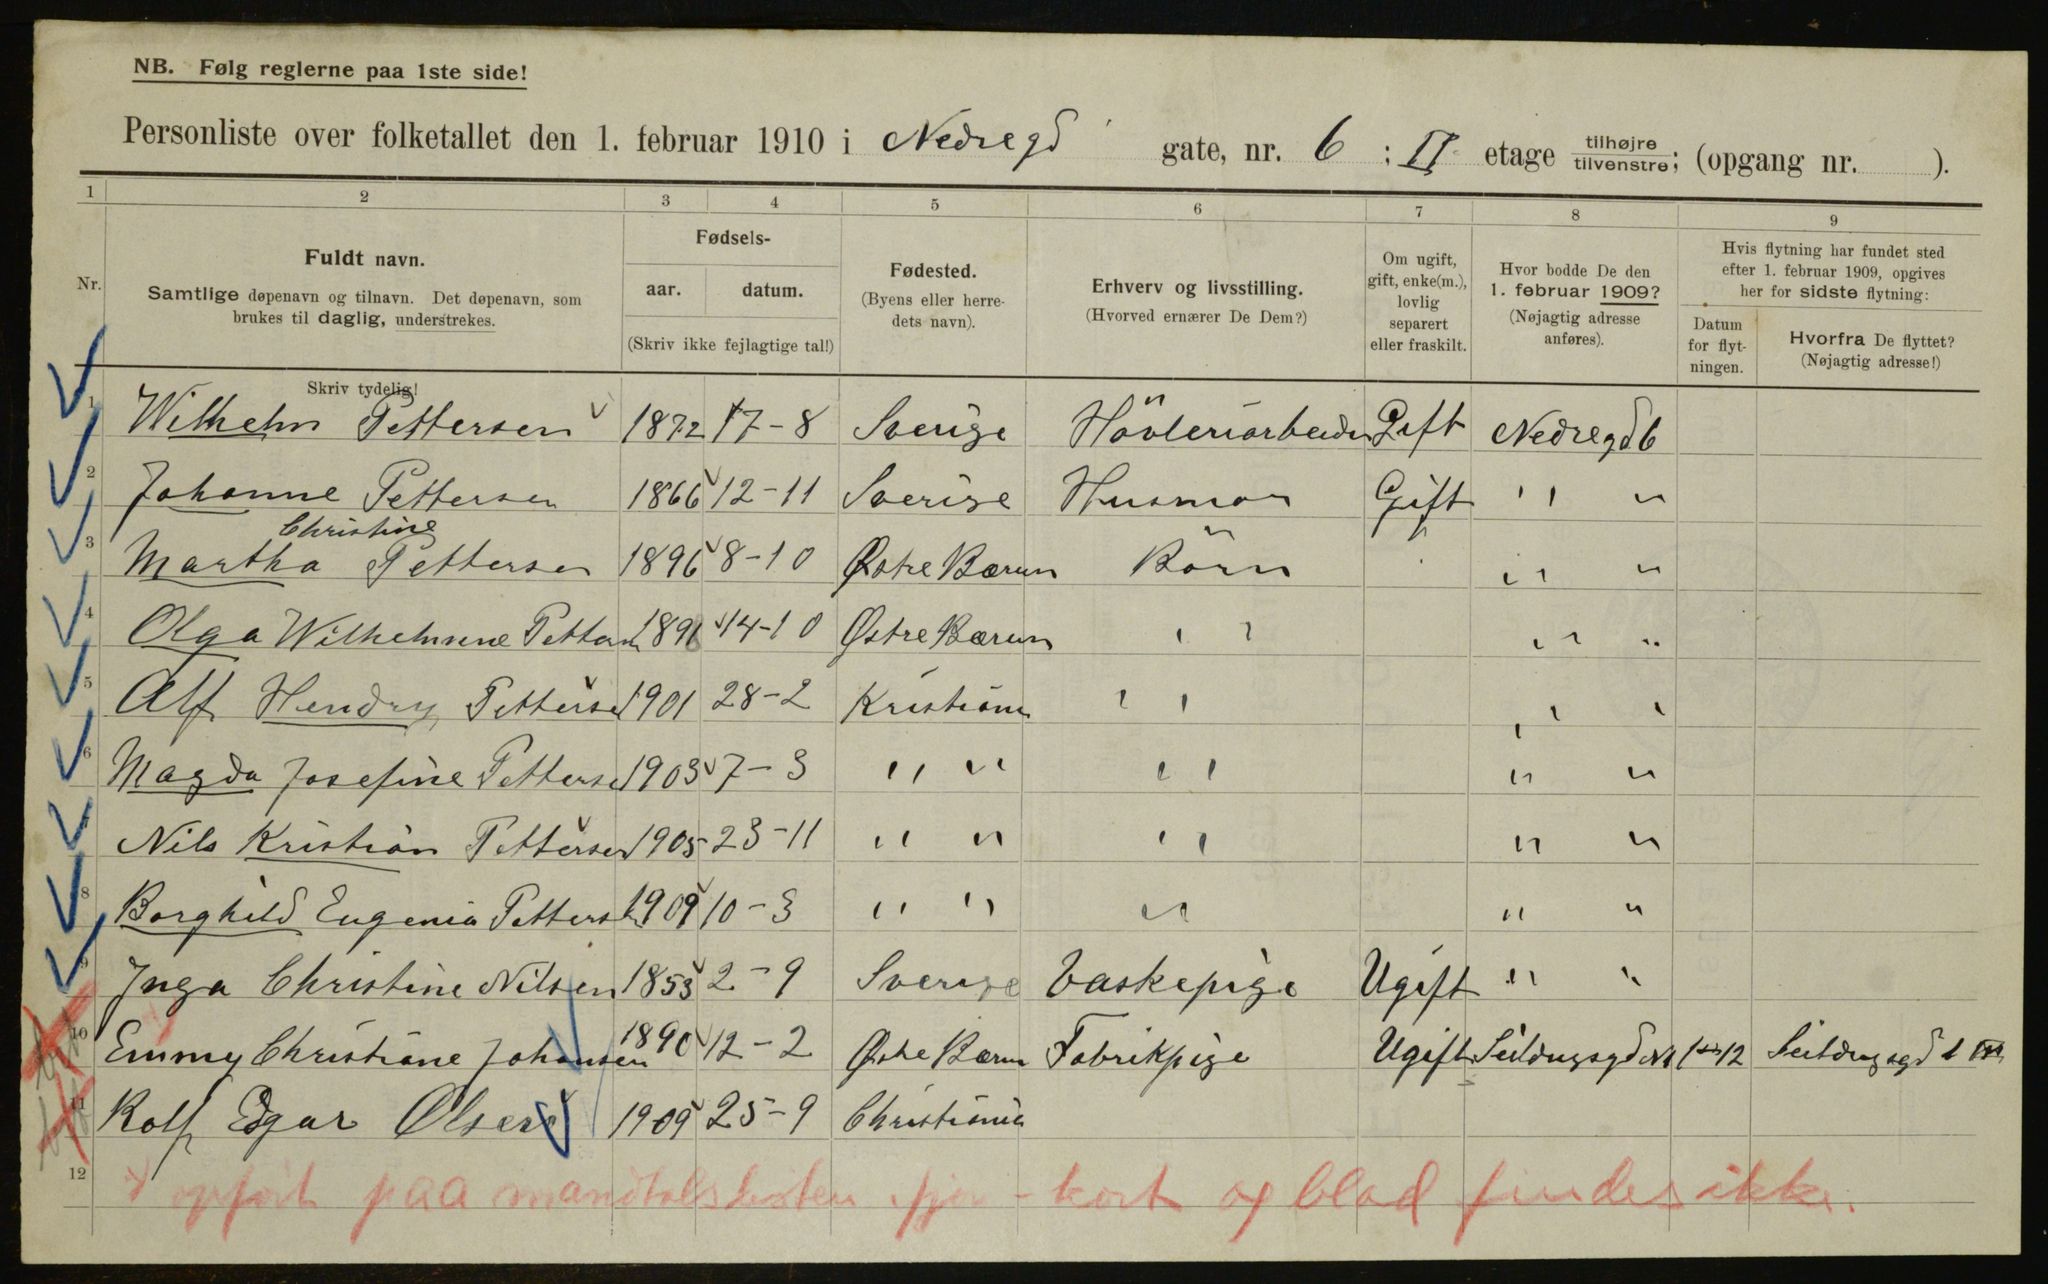 NB. Følg reglerne paa 1ste side!
Personliste over folketallet den 1. februar 1910 i Nedregd gate, nr. 6 ; II etage tilhøjre tilvenstre; (opgang nr. ).
1 2 3 4 5 6 7 8 9
Nr. Fuldt navn. Samtlige døpenavn og tilnavn. Det døpenavn, som brukes til daglig, understrekes. Skriv tydelig!
Fødsels- aar. datum. (Skriv ikke fejlagtige tal!)
Fødested. (Byens eller herredets navn).
Erhverv og livsstilling. (Hvorved ernærer De Dem?)
Om ugift, gift, enke(m.), lovlig separert eller fraskilt.
Hvor bodde De den 1. februar 1909? (Nøjagtig adresse anføres).
Hvis flytning har fundet sted efter 1. februar 1909, opgives her for sidste flytning:
Datum for flytningen. Hvorfra De flyttet? (Nøjagtig adresse!)
1 Wilhelm Pettersen 1872 17-8 Sverige Hövleriarbeider Gift Nedregd 6
2 Johanne Pettersen 1866 12-11 Sverige Husmor Gift " "
Christine
3 Martha Pettersen 1896 8-10 Østre Bærum Börn " "
4 Olga Wilhelmine Pettersen 1898 14-10 Østre Bærum " " "
5 Alf Hendry Pettersen 1901 28-2 Kristiania " " "
6 Magda Josefine Pettersen 1903 7-3 " " " " "
Nils Kristian Pettersen 1905 23-11 " " " " "
8 Borghild Eugenia Pettersen 1909 10-3 " " " " "
9 Inga Christine Nilsen 1853 2-9 Sverige Vaskepige Ugift " "
10 Emmy Christiane Johansen 1890 12-2 Østre Bærum Fabrikpige Ugift Seildugsgd 12 Seildugsgd 1 III
11 Rolf Edgar Olsen 1909 25-9 Christiania
12 opført paa mandtalslisten kort og blad findes ikke.